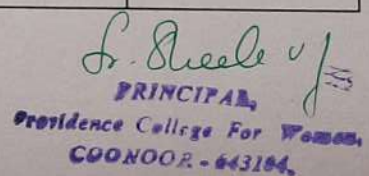 Sr. Sheela VJ
PRINCIPAL,
Providence College For Women,
COONOOR - 643104.